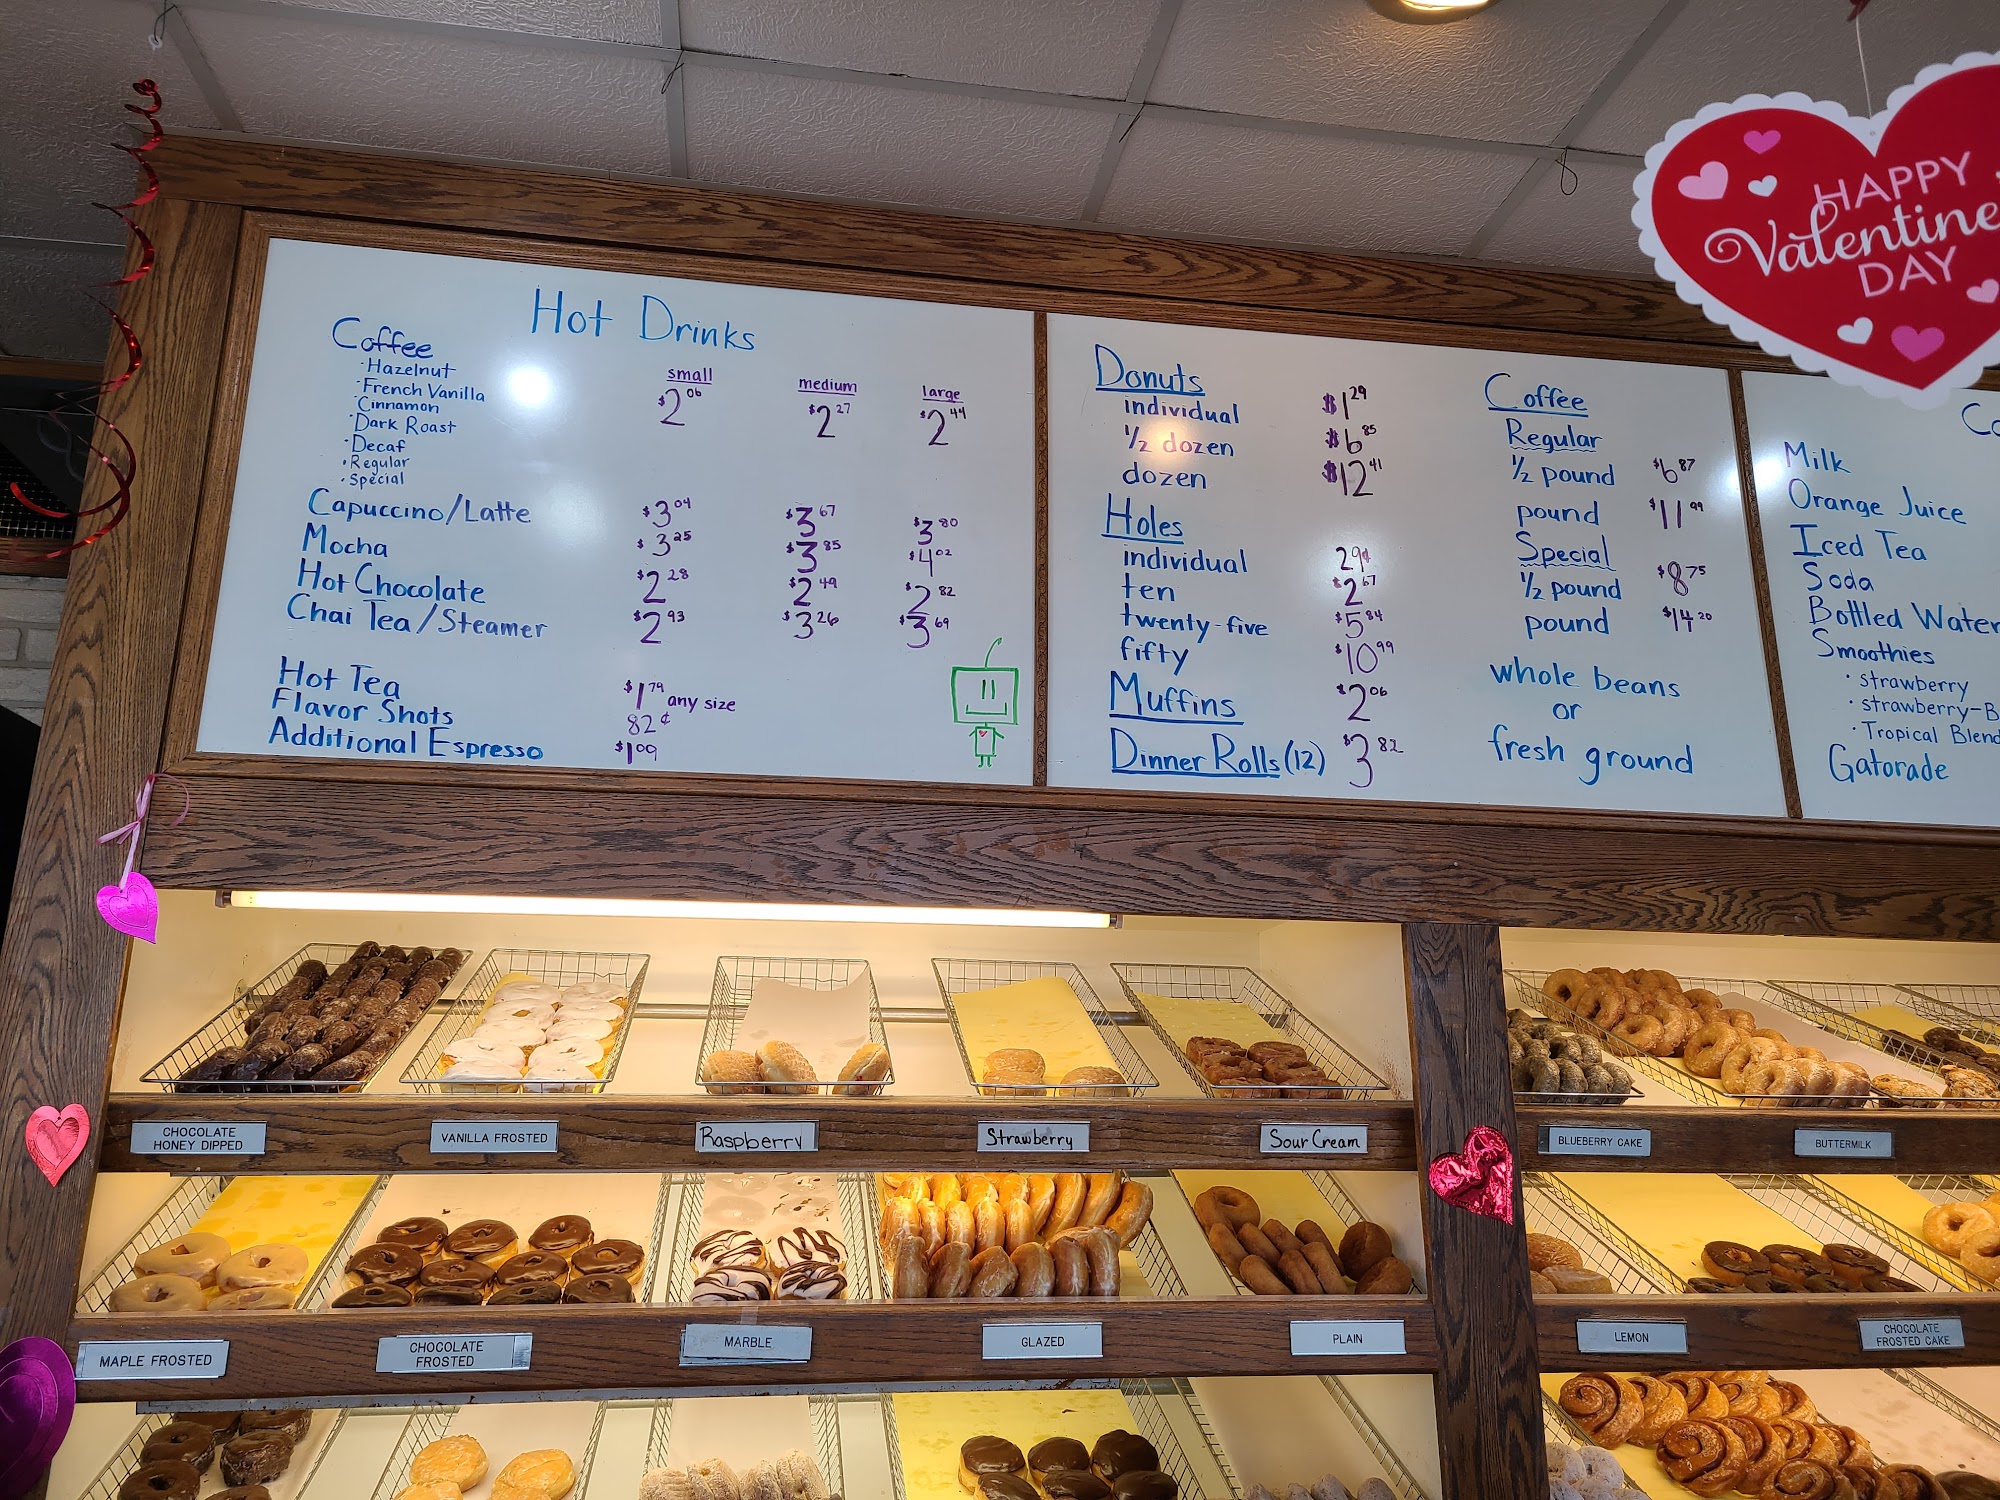 HAPPY
Valentine
DAY
Hot Drinks
Coffee
small medium large
·Hazelnut
·French Vanilla
·Cinnamon
·Dark Roast
·Decaf
·Regular
·Special
$2.06 $2.27 $2.44
Capuccino/Latte $3.04 $3.67 $3.80
Mocha $3.25 $3.85 $4.02
Hot Chocolate $2.28 $2.49 $2.82
Chai Tea/Steamer $2.93 $3.26 $3.69
Hot Tea $1.79 any size
Flavor Shots 82¢
Additional Espresso $1.09
Donuts
individual $1.29
1/2 dozen $6.85
dozen $12.41
Holes
individual 29¢
ten $2.67
twenty-five $5.84
fifty $10.99
Muffins $2.06
Dinner Rolls (12) $3.82
Coffee
Regular
1/2 pound $6.87
pound $11.99
Special
1/2 pound $8.75
pound $14.20
whole beans
or
fresh ground
Milk
Orange Juice
Iced Tea
Soda
Bottled Water
Smoothies
· strawberry
· strawberry-B
· Tropical Blend
Gatorade
CHOCOLATE
HONEY DIPPED
VANILLA FROSTED
Raspberry
Strawberry
Sour Cream
BLUEBERRY CAKE
BUTTERMILK
MAPLE FROSTED
CHOCOLATE
FROSTED
MARBLE
GLAZED
PLAIN
LEMON
CHOCOLATE
FROSTED CAKE